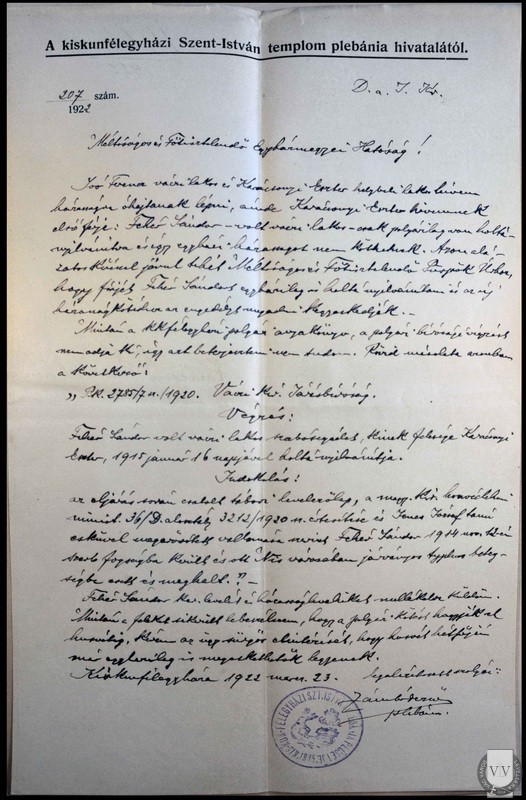 A kiskunfélegyházi Szent-István templom plebánia hivatalától.
207 szám.
1922
D. a. J. Kr.
Méltóságos és Főtisztelendő Egyházmegyei Hatóság!
Joó Ferenc váci lakos és Karácsonyi Eszter helybeli lakos híveim
házasságra óhajtanak lépni, de Karácsonyi Eszter hívemnek
első férje: Fehér Sándor volt váci lakos csak polgárilag van holttá
nyilvánítva és így egyházi házasságot nem köthetnek. Azon alá-
zatos kéréssel járul tehát Méltóságos és Főtisztelendő Püspök Úrhoz,
hogy férjét Fehér Sándort egyházilag is holttá nyilvánítani és az új
házasságkötéshez az engedélyt megadni kegyeskedjék. –
Miután a kkfélegyházi polgári anyakönyv, a polgári bírósági végzést
nem adja ki, így azt beterjeszteni nem tudom. Rövid részlete azonban
a következő:
"Pk. 2785/7 sz./1920. Váci kir. Járásbíróság.
Végzés:
Fehér Sándor volt váci lakos szabósegédet, kinek felesége Karácsonyi
Eszter, 1915 január 16 napjával holttá nyilvánítja.
Indokolás:
az eljárás során csatolt tábori levelezőlap, a magy. kir. honvédelmi
minist. 36/D. alosztály 3212/1920 sz. értesítése és Jenes József tanú
esküvel megerősített vallomása szerint Fehér Sándor 1914 nov. 12-én
szerb fogságba került és ott Nis városában járványos typhus beteg-
ségbe esett és meghalt." –
Fehér Sándor ker. levelét és házassági levelüket mellékelve küldöm.
Miután a feleket sikerült lebeszélnem, hogy a polgári kötést hagyják el
húsvétig, kérem az ügy sürgős elintézését, hogy húsvét hétfőjén
már egyházilag is megeskethetők legyenek.
Kiskunfélegyháza 1922 marc. 23.
legalázatosabb szolgája:
Zámbó Dezső
plébános.
VV